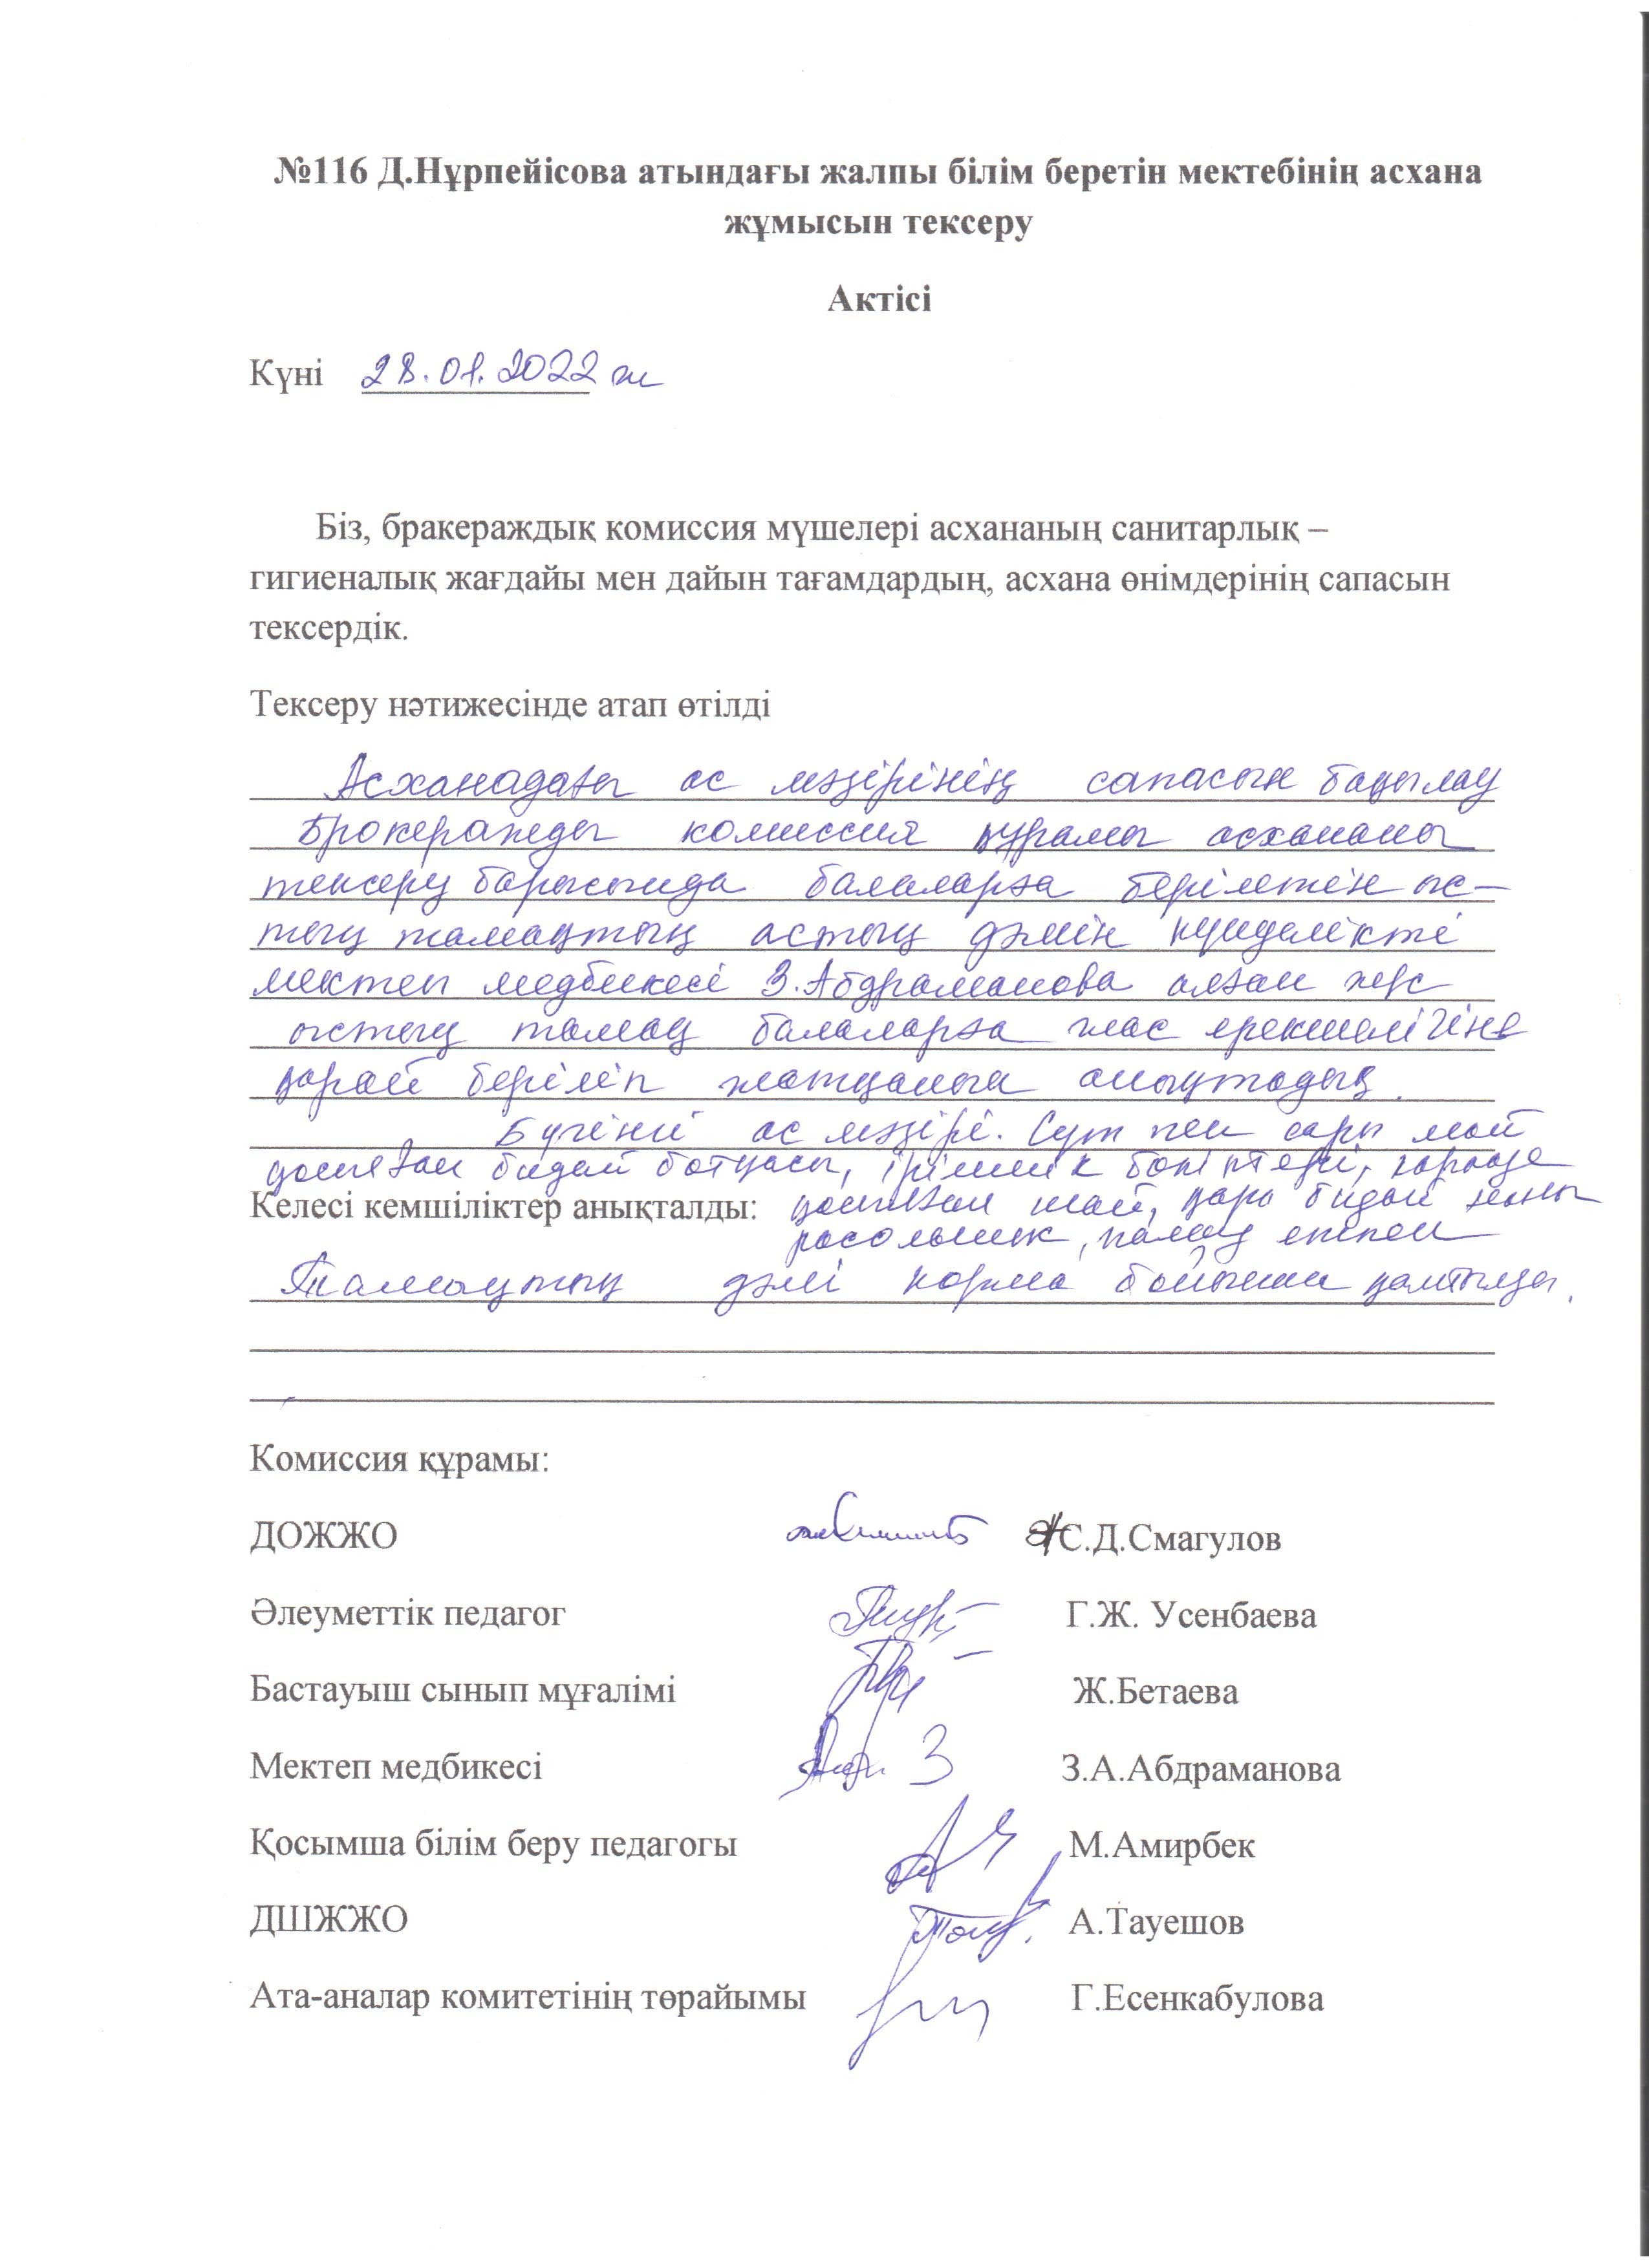 №116 Д.Нұрпейісова атындағы жалпы білім беретін мектебінің асхана
жұмысын тексеру
Актісі
Күні 28.01.2022 ж
Біз, бракераждық комиссия мүшелері асхананың санитарлық –
гигиеналық жағдайы мен дайын тағамдардың, асхана өнімдерінің сапасын
тексердік.
Тексеру нәтижесінде атап өтілді
Асханадағы ас мәзірінің сапасын бақылау
Брокеражды комиссия құрамы асхананы
тексеру барысында балаларға берілетін ыс-
тық тамақтың астың дәмін күнделікті
мектеп медбикесі З.Абдраманова алған жерс
ыстық тамақ балаларға жас ерекшелігіне
қарай беріліп жатқанын анықтадық.
Бүгінгі ас мәзірі. Сүт пен сары май
қосылған бидай ботқасы, ірімшік
Келесі кемшіліктер анықталды: қосылған шай, қара бидай наны
расольник, палау
Тамақтың дәмі норма бойынша қамтылды.
Комиссия құрамы:
ДОЖЖО С.Д.Смагулов
Әлеуметтік педагог Г.Ж. Усенбаева
Бастауыш сынып мұғалімі Ж.Бетаева
Мектеп медбикесі З.А.Абдраманова
Қосымша білім беру педагогы М.Амирбек
ДШЖЖО А.Тауешов
Ата-аналар комитетінің төрайымы Г.Есенкабулова